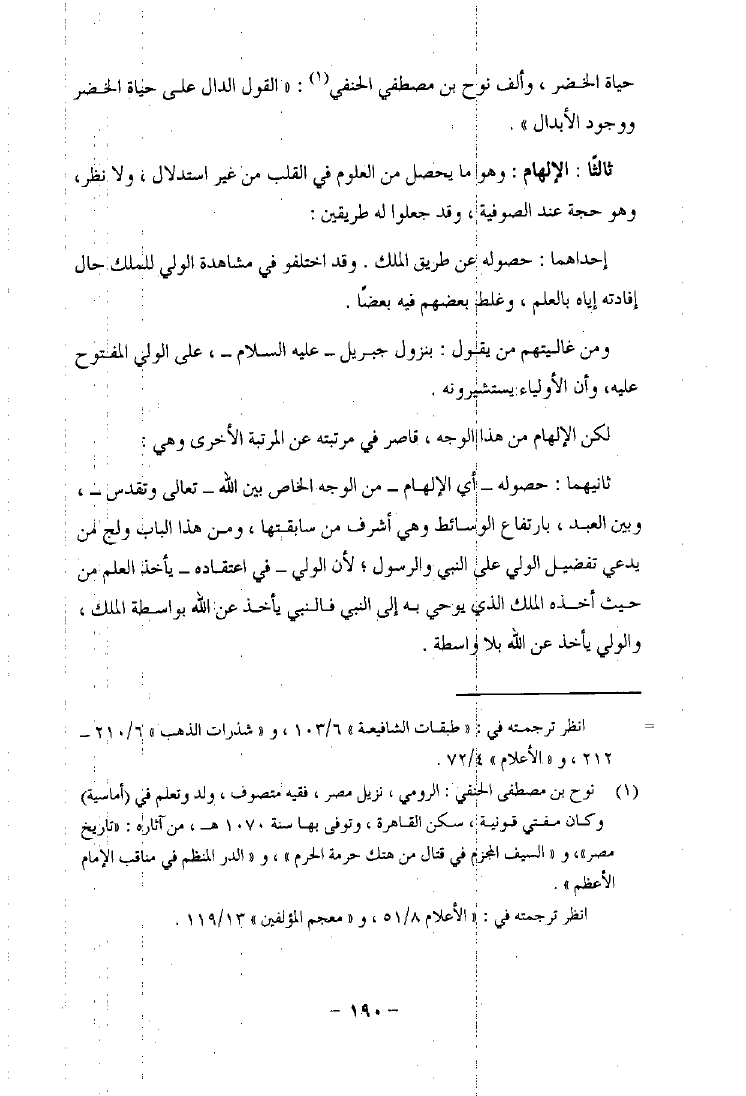 حياة الخضر ، وألف نوح بن مصطفي الحنفي(١) : « القول الدال على حياة الخضر
ووجود الأبدال » .
ثالثًا : الإلهام : وهو ما يحصل من العلوم في القلب من غير استدلال ، ولا نظر،
وهو حجة عند الصوفية ، وقد جعلوا له طريقين :
إحداهما : حصوله عن طريق الملك . وقد اختلفو في مشاهدة الولي للملك حال
إفادته إياه بالعلم ، وغلط بعضهم فيه بعضًا .
ومن غاليتهم من يقول : بنزول جبريل ــ عليه السلام ــ ، على الولي المفتوح
عليه، وأن الأولياء يستشيرونه .
لكن الإلهام من هذا الوجه ، قاصر في مرتبته عن المرتبة الأخرى وهي :
ثانيهما : حصوله ــ أي الإلهام ــ من الوجه الخاص بين الله ــ تعالى وتقدس ــ ،
وبين العبد ، بارتفاع الوسائط وهي أشرف من سابقتها ، ومن هذا الباب ولج من
يدعي تفضيل الولي على النبي والرسول ؛ لأن الولي ــ في اعتقاده ــ يأخذ العلم من
حيث أخذه الملك الذي يوحي به إلى النبي فالنبي يأخذ عن الله بواسطة الملك ،
والولي يأخذ عن الله بلا واسطة .
= انظر ترجمته في : « طبقات الشافيعة » ١٠٣/٦ ، و « شذرات الذهب » ٢١٠/٦ ــ
٢١٢ ، و « الأعلام » ٧٢/٤ .
(١) نوح بن مصطفى الحنفي : الرومي ، نزيل مصر ، فقيه متصوف ، ولد وتعلم في (أماسية)
وكان مفتي قونية ، سكن القاهرة ، وتوفى بها سنة ١٠٧٠ هـ ، من آثاره : «تاريخ
مصر»، و « السيف المجزم في قتال من هتك حرمة الحرم » ، و « الدر المنظم في مناقب الإمام
الأعظم » .
انظر ترجمته في : « الأعلام ٥١/٨ ، و « معجم المؤلفين » ١١٩/١٣ .
ــ ١٩٠ ــ